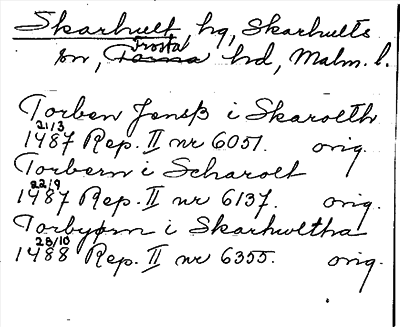 Skarhult, hg, Skarhults
Frosta
sn, Torna hd, Malm. l.
Torben Jensß i Skarolth
21/3
1487 Rep. II nr 6051. orig.
Torbern i Scharolt
22/9
1487 Rep. II nr 6137. orig.
Torbyørn i Skarhwltha
23/10
1488 Rep. II nr 6355. orig.